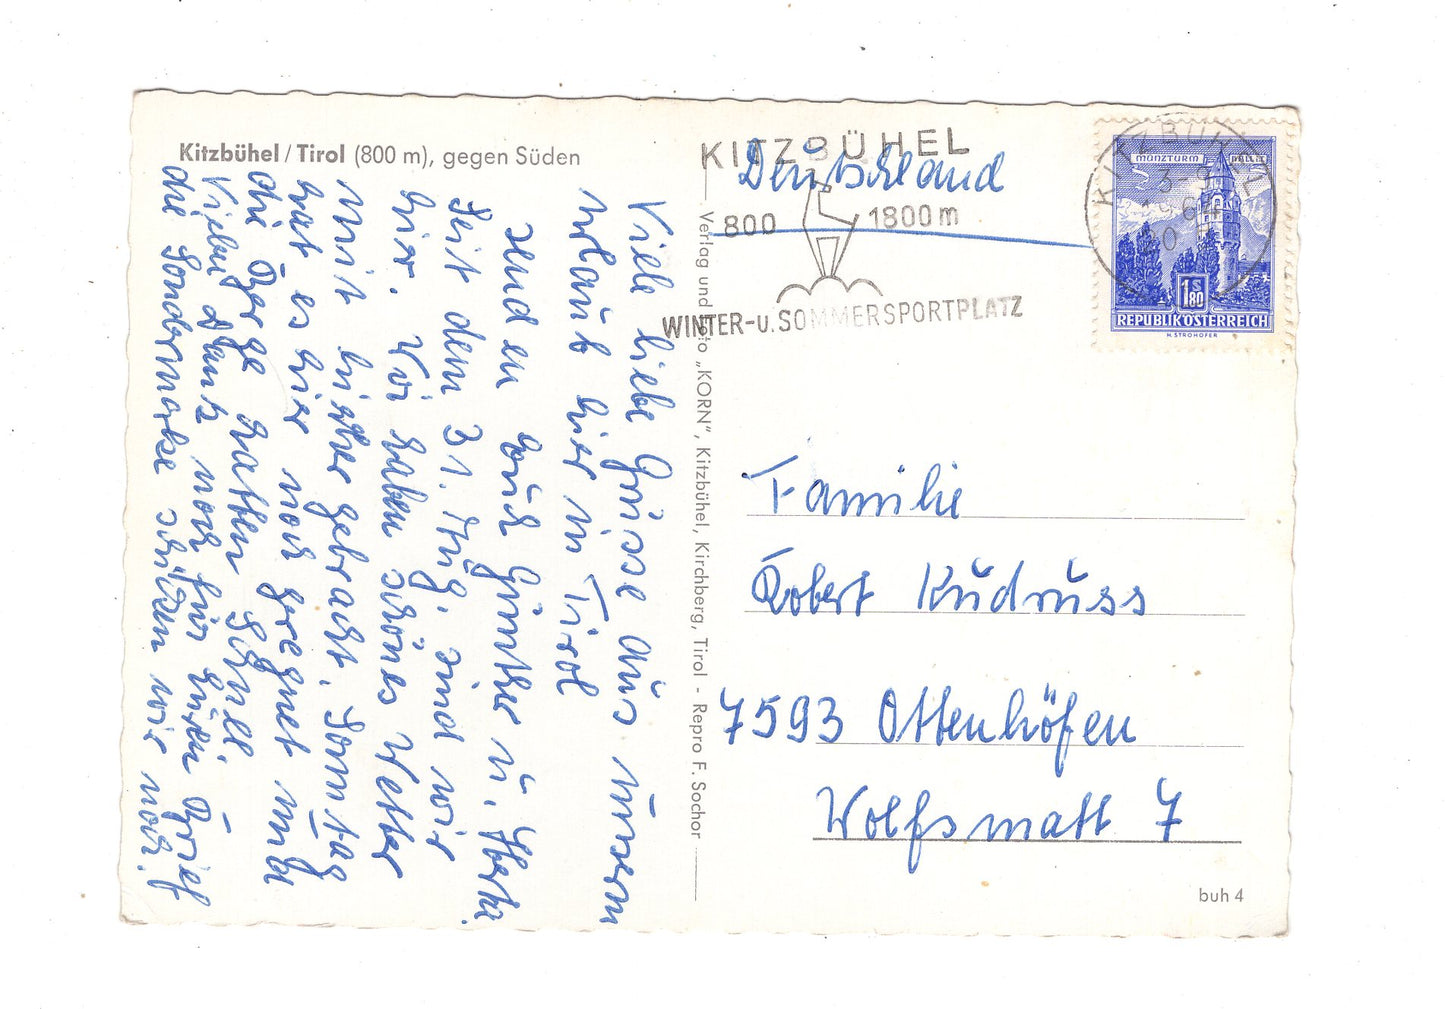 Kitzbühel / Tirol (800 m), gegen Süden
Viele liebe Grüsse aus unserm
Urlaub hier in Tirol
senden Euch Günther u. Herta.
Seit dem 31. Aug. sind wir
hier. Wir haben schönes Wetter
mit hierher gebracht. Sonntag
hat es hier noch geregnet und
die Berge hatten Schnee.
Vielen Dank noch für Euren Brief
die Sondermarke schicken wir noch.
Verlag und Foto „KORN", Kitzbühel, Kirchberg, Tirol - Repro F. Sochor
KITZBÜHEL
Deutschland
800 1800m
WINTER-u. SOMMERSPORTPLATZ
KITZBÜHEL
MÜNZTURM HALL i. T.
1.80 S
REPUBLIK ÖSTERREICH
H. STROHOFER
Familie
Robert Kudruss
7593 Ottenhöfen
Wolfsmatt 7
buh 4